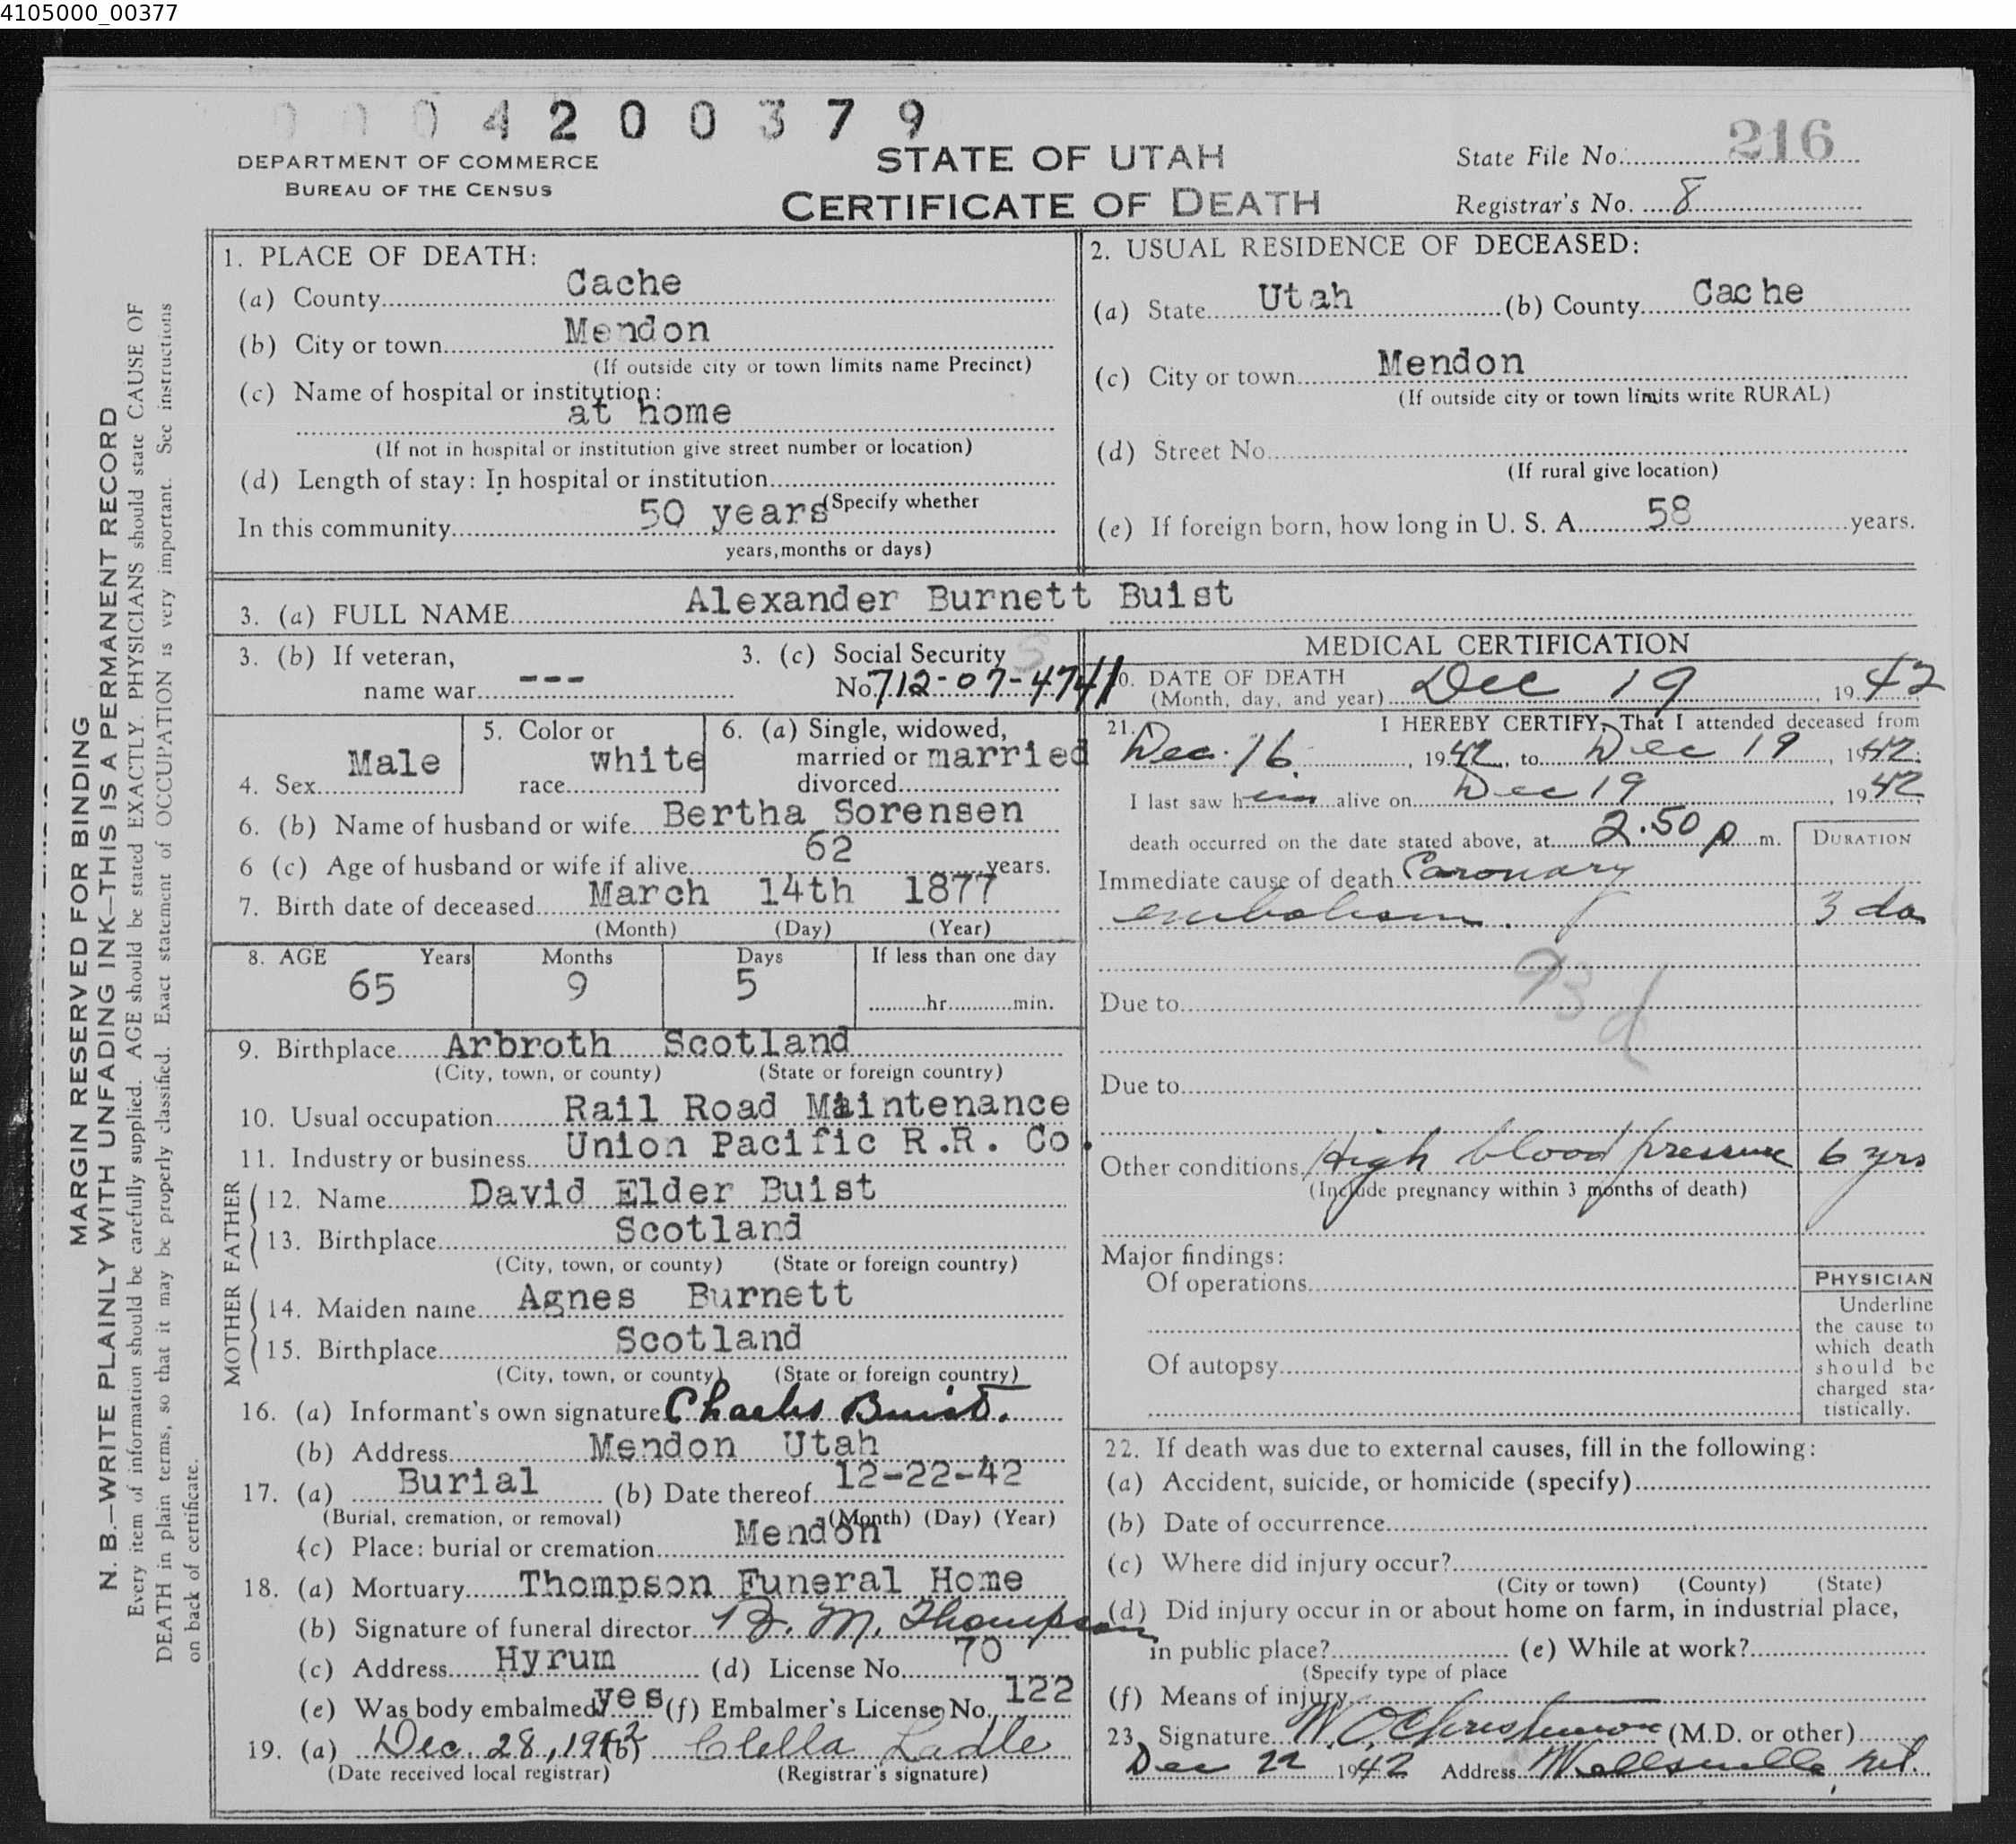 4105000_00377
0004200379
DEPARTMENT OF COMMERCE
BUREAU OF THE CENSUS
STATE OF UTAH
CERTIFICATE OF DEATH
State File No. 216
Registrar's No. 8
MARGIN RESERVED FOR BINDING
N. B.—WRITE PLAINLY WITH UNFADING INK—THIS IS A PERMANENT RECORD
Every item of information should be carefully supplied. AGE should be stated EXACTLY. PHYSICIANS should state CAUSE OF
DEATH in plain terms, so that it may be properly classified. Exact statement of OCCUPATION is very important. See instructions
on back of certificate.
1. PLACE OF DEATH:
(a) County Cache
(b) City or town Mendon
(If outside city or town limits name Precinct)
(c) Name of hospital or institution:
at home
(If not in hospital or institution give street number or location)
(d) Length of stay: In hospital or institution
(Specify whether
In this community 50 years
years, months or days)
2. USUAL RESIDENCE OF DECEASED:
(a) State Utah (b) County Cache
(c) City or town Mendon
(If outside city or town limits write RURAL)
(d) Street No.
(If rural give location)
(e) If foreign born, how long in U. S. A. 58 years.
3. (a) FULL NAME Alexander Burnett Buist
3. (b) If veteran,
name war ---
3. (c) Social Security
No 712-07-4741
4. Sex Male
5. Color or
race white
6. (a) Single, widowed,
married or married
divorced
6. (b) Name of husband or wife Bertha Sorensen
6 (c) Age of husband or wife if alive 62 years.
7. Birth date of deceased March 14th 1877
(Month) (Day) (Year)
8. AGE Years Months Days If less than one day
65 9 5 hr. min.
9. Birthplace Arbroth Scotland
(City, town, or county) (State or foreign country)
10. Usual occupation Rail Road Maintenance
11. Industry or business Union Pacific R.R. Co.
FATHER
12. Name David Elder Buist
13. Birthplace Scotland
(City, town, or county) (State or foreign country)
MOTHER
14. Maiden name Agnes Burnett
15. Birthplace Scotland
(City, town, or county) (State or foreign country)
16. (a) Informant's own signature Charles Buist.
(b) Address Mendon Utah
17. (a) Burial (b) Date thereof 12-22-42
(Burial, cremation, or removal) (Month) (Day) (Year)
(c) Place: burial or cremation Mendon
18. (a) Mortuary Thompson Funeral Home
(b) Signature of funeral director B. M. Thompson
(c) Address Hyrum (d) License No. 70
(e) Was body embalmed? yes (f) Embalmer's License No. 122
19. (a) Dec. 28, 1942 (b) Clella Ladle
(Date received local registrar) (Registrar's signature)
MEDICAL CERTIFICATION
20. DATE OF DEATH
(Month, day, and year) Dec 19, 1942
21. I HEREBY CERTIFY, That I attended deceased from
Dec. 16, 1942, to Dec 19, 1942.
I last saw him alive on Dec 19, 1942
death occurred on the date stated above, at 2.50 p m.
DURATION
Immediate cause of death Caronary
embolism. 3 da
93d
Due to
Due to
Other conditions High blood pressure 6 yrs
(Include pregnancy within 3 months of death)
Major findings:
Of operations
Of autopsy
PHYSICIAN
Underline
the cause to
which death
should be
charged sta-
tistically.
22. If death was due to external causes, fill in the following:
(a) Accident, suicide, or homicide (specify)
(b) Date of occurrence
(c) Where did injury occur?
(City or town) (County) (State)
(d) Did injury occur in or about home on farm, in industrial place,
in public place? (e) While at work?
(Specify type of place
(f) Means of injury
23. Signature W. O. Christensen (M.D. or other)
Dec 22 1942 Address Wellsville, Ut.